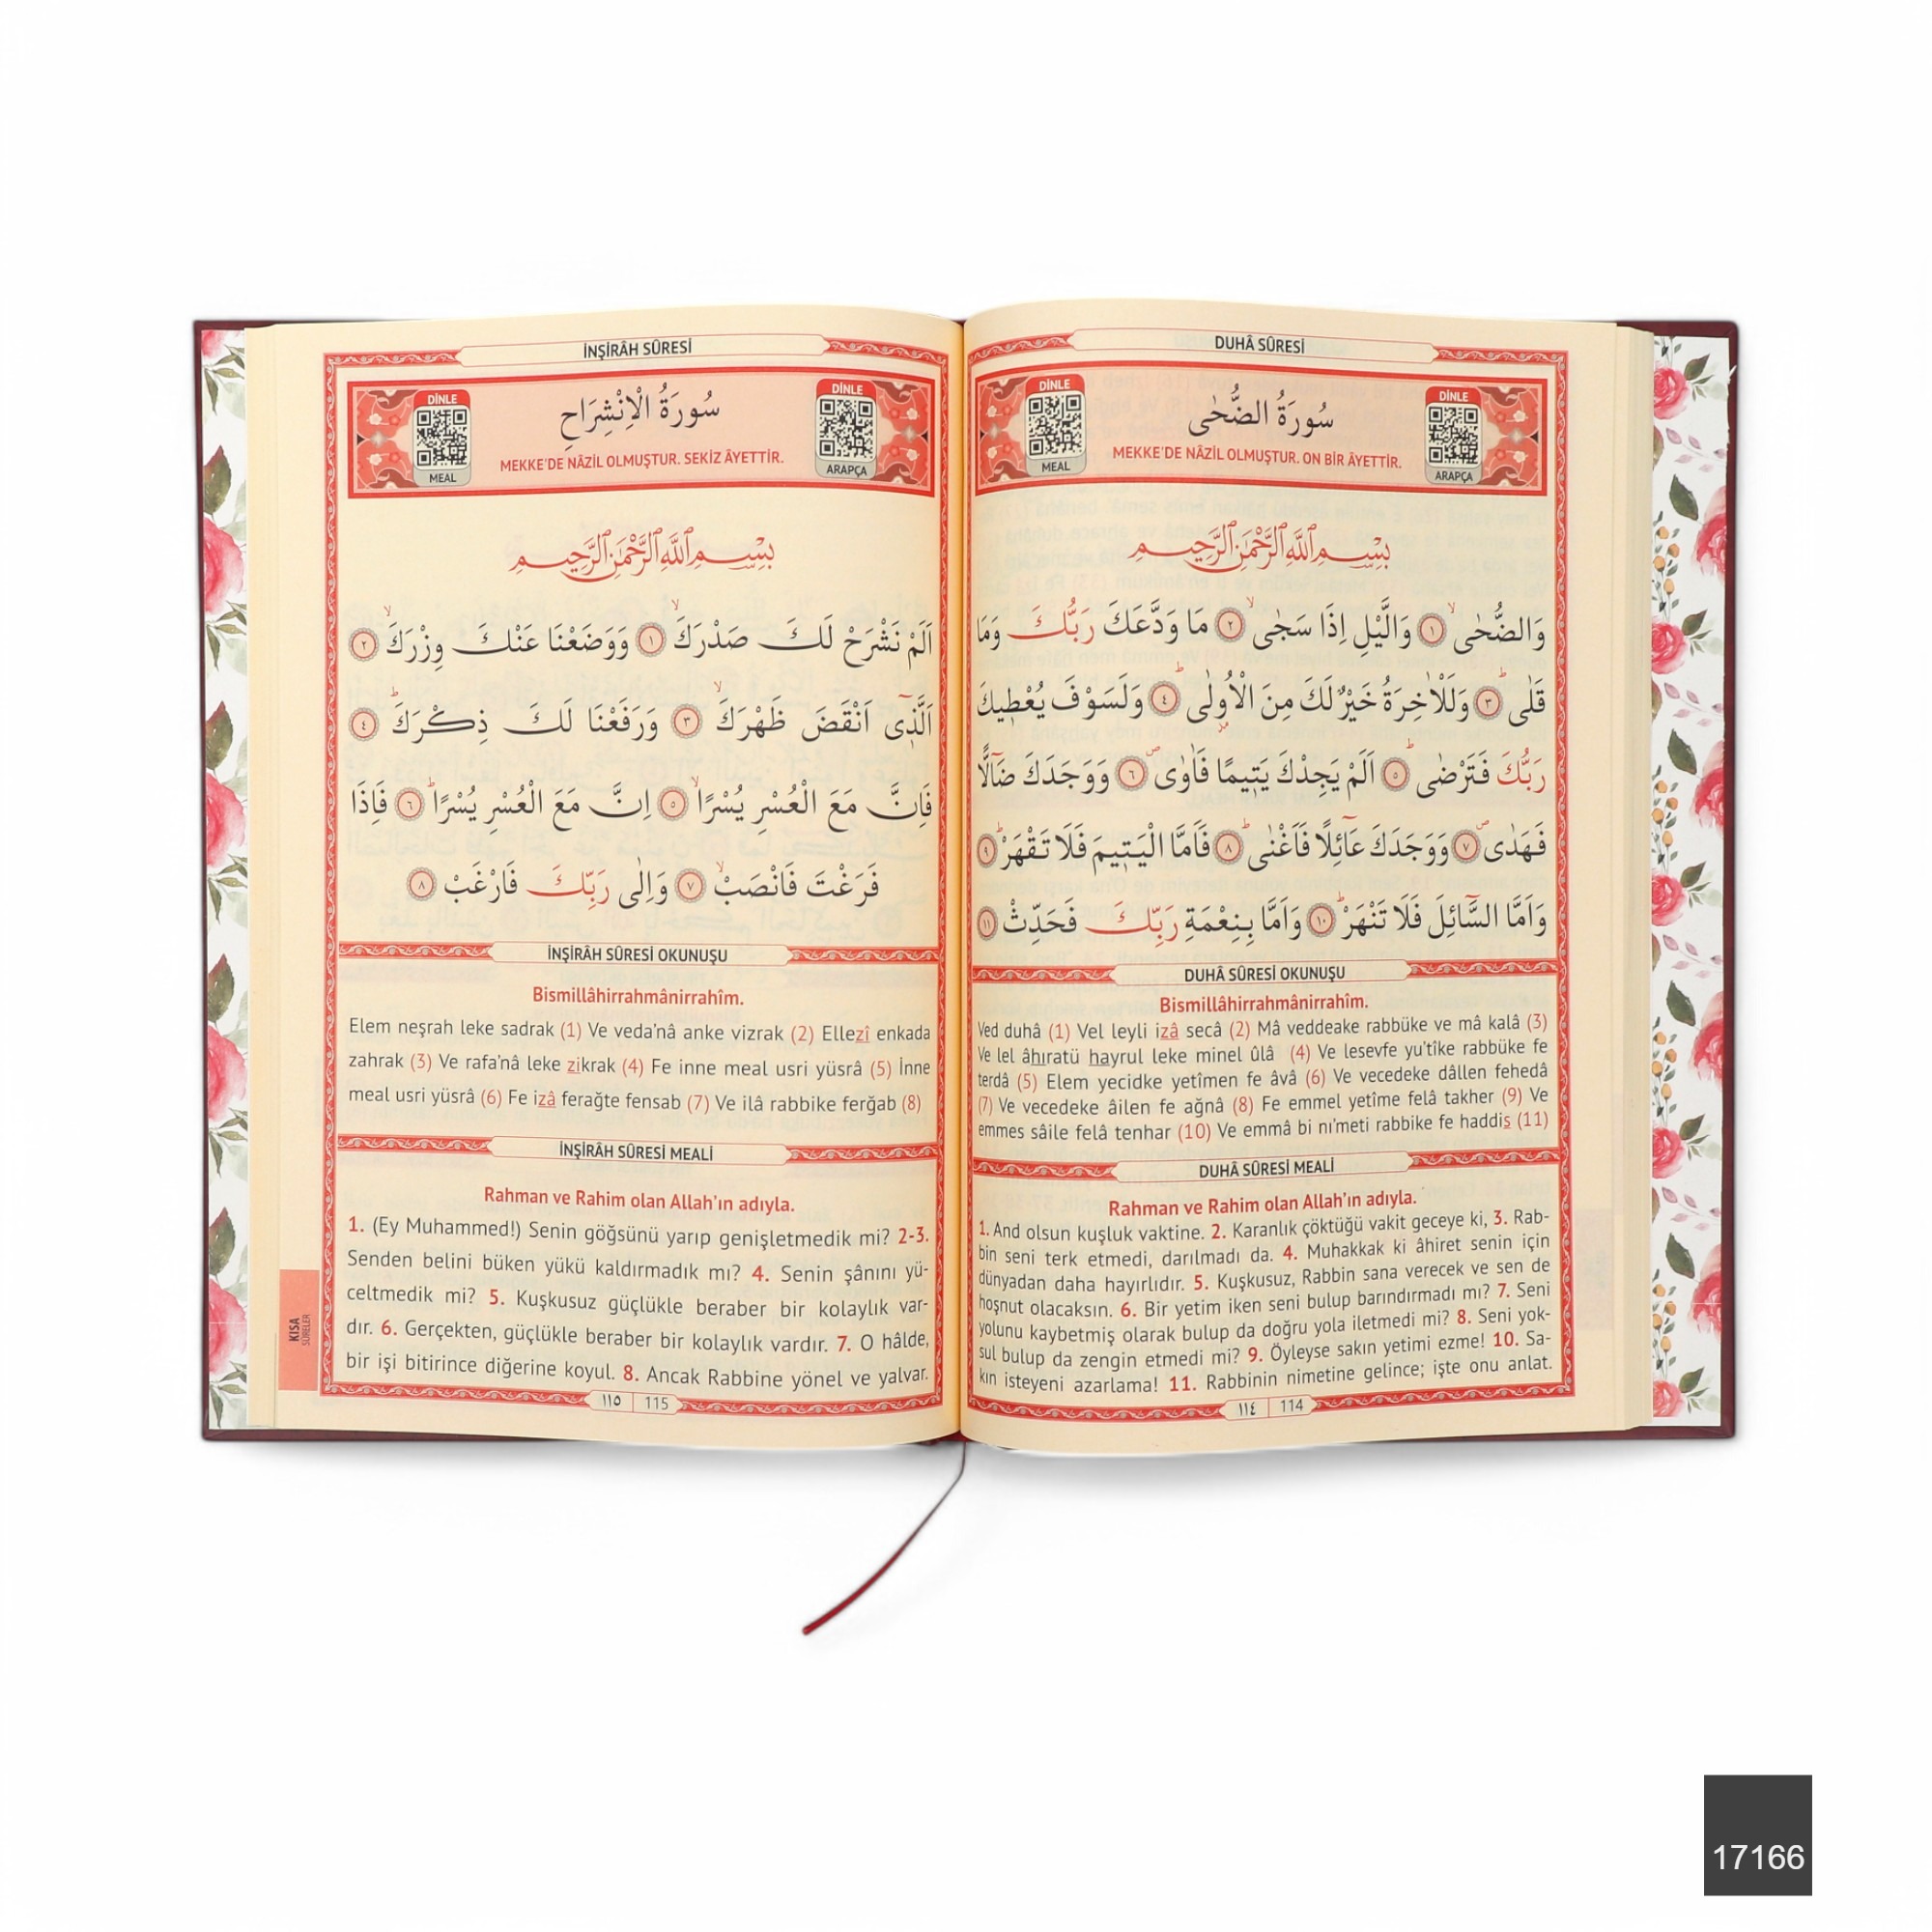 DUHÂ SÛRESİ
DİNLE
MEAL
سُورَةُ الضُّحٰى
MEKKE'DE NÂZİL OLMUŞTUR. ON BİR ÂYETTİR.
DİNLE
ARAPÇA
بِسْمِ اللّٰهِ الرَّحْمٰنِ الرَّحِيمِ
وَالضُّحٰىۙ ﴿١﴾ وَالَّيْلِ اِذَا سَجٰىۙ ﴿٢﴾ مَا وَدَّعَكَ رَبُّكَ وَمَا
قَلٰىۜ ﴿٣﴾ وَلَلْاٰخِرَةُ خَيْرٌ لَكَ مِنَ الْاُو۫لٰىۜ ﴿٤﴾ وَلَسَوْفَ يُعْطٖيكَ
رَبُّكَ فَتَرْضٰىۜ ﴿٥﴾ اَلَمْ يَجِدْكَ يَتٖيمًا فَاٰوٰىۖ ﴿٦﴾ وَوَجَدَكَ ضَٓالًّا
فَهَدٰىۖ ﴿٧﴾ وَوَجَدَكَ عَٓائِلًا فَاَغْنٰىۜ ﴿٨﴾ فَاَمَّا الْيَتٖيمَ فَلَا تَقْهَرْۜ ﴿٩﴾
وَاَمَّا السَّٓائِلَ فَلَا تَنْهَرْۜ ﴿١٠﴾ وَاَمَّا بِنِعْمَةِ رَبِّكَ فَحَدِّثْ ﴿١١﴾
DUHÂ SÛRESİ OKUNUŞU
Bismillâhirrahmânirrahîm.
Ved duhâ (1) Vel leyli izâ secâ (2) Mâ veddeake rabbüke ve mâ kalâ (3)
Ve lel âhıratü hayrul leke minel ûlâ (4) Ve lesevfe yu'tîke rabbüke fe
terdâ (5) Elem yecidke yetîmen fe âvâ (6) Ve vecedeke dâllen fehedâ
(7) Ve vecedeke âilen fe ağnâ (8) Fe emmel yetîme felâ takher (9) Ve
emmes sâile felâ tenhar (10) Ve emmâ bi nı'meti rabbike fe haddis (11)
DUHÂ SÛRESİ MEALİ
Rahman ve Rahim olan Allah'ın adıyla.
1. And olsun kuşluk vaktine. 2. Karanlık çöktüğü vakit geceye ki, 3. Rab-
bin seni terk etmedi, darılmadı da. 4. Muhakkak ki âhiret senin için
dünyadan daha hayırlıdır. 5. Kuşkusuz, Rabbin sana verecek ve sen de
hoşnut olacaksın. 6. Bir yetim iken seni bulup barındırmadı mı? 7. Seni
yolunu kaybetmiş olarak bulup da doğru yola iletmedi mi? 8. Seni yok-
sul bulup da zengin etmedi mi? 9. Öyleyse sakın yetimi ezme! 10. Sa-
kın isteyeni azarlama! 11. Rabbinin nimetine gelince; işte onu anlat.
١١٤ | 114
İNŞİRÂH SÛRESİ
DİNLE
MEAL
سُورَةُ الْاِنْشِرَاحِ
MEKKE'DE NÂZİL OLMUŞTUR. SEKİZ ÂYETTİR.
DİNLE
ARAPÇA
بِسْمِ اللّٰهِ الرَّحْمٰنِ الرَّحِيمِ
اَلَمْ نَشْرَحْ لَكَ صَدْرَكَۙ ﴿١﴾ وَوَضَعْنَا عَنْكَ وِزْرَكَۙ ﴿٢﴾
اَلَّذٖٓى اَنْقَضَ ظَهْرَكَۙ ﴿٣﴾ وَرَفَعْنَا لَكَ ذِكْرَكَۜ ﴿٤﴾
فَاِنَّ مَعَ الْعُسْرِ يُسْرًاۙ ﴿٥﴾ اِنَّ مَعَ الْعُسْرِ يُسْرًاۜ ﴿٦﴾ فَاِذَا
فَرَغْتَ فَانْصَبْۙ ﴿٧﴾ وَاِلٰى رَبِّكَ فَارْغَبْ ﴿٨﴾
İNŞİRÂH SÛRESİ OKUNUŞU
Bismillâhirrahmânirrahîm.
Elem neşrah leke sadrak (1) Ve veda'nâ anke vizrak (2) Ellezî enkada
zahrak (3) Ve rafa'nâ leke zikrak (4) Fe inne meal usri yüsrâ (5) İnne
meal usri yüsrâ (6) Fe izâ ferağte fensab (7) Ve ilâ rabbike ferğab (8)
İNŞİRÂH SÛRESİ MEALİ
Rahman ve Rahim olan Allah'ın adıyla.
1. (Ey Muhammed!) Senin göğsünü yarıp genişletmedik mi? 2-3.
Senden belini büken yükü kaldırmadık mı? 4. Senin şânını yü-
celtmedik mi? 5. Kuşkusuz güçlükle beraber bir kolaylık var-
dır. 6. Gerçekten, güçlükle beraber bir kolaylık vardır. 7. O hâlde,
bir işi bitirince diğerine koyul. 8. Ancak Rabbine yönel ve yalvar.
KISA
SÛRELER
١١٥ | 115
17166